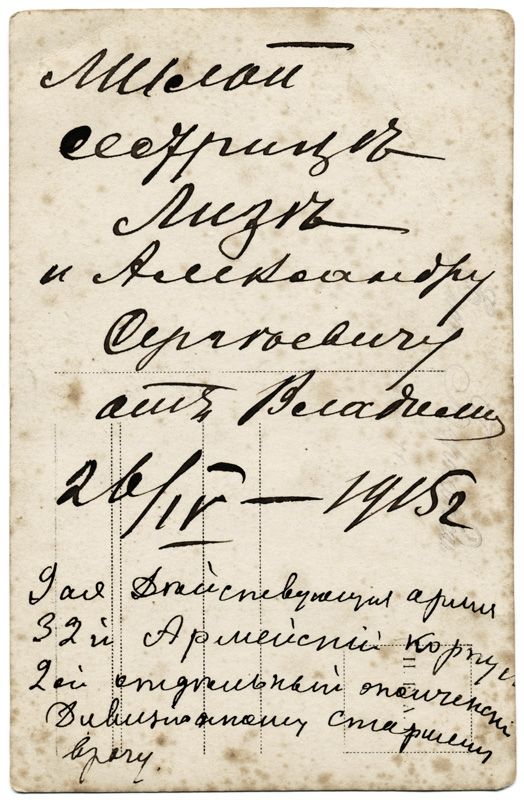 Милой
сестрицѣ
Лизѣ
и Александру
Сергѣевичу
отъ Владимира
26/IV — 1915 г
9ая Дѣйствующая армия
32й Армейскій корпус
2ой отдѣльный ополченскій
Дивизионному старшему
врачу.